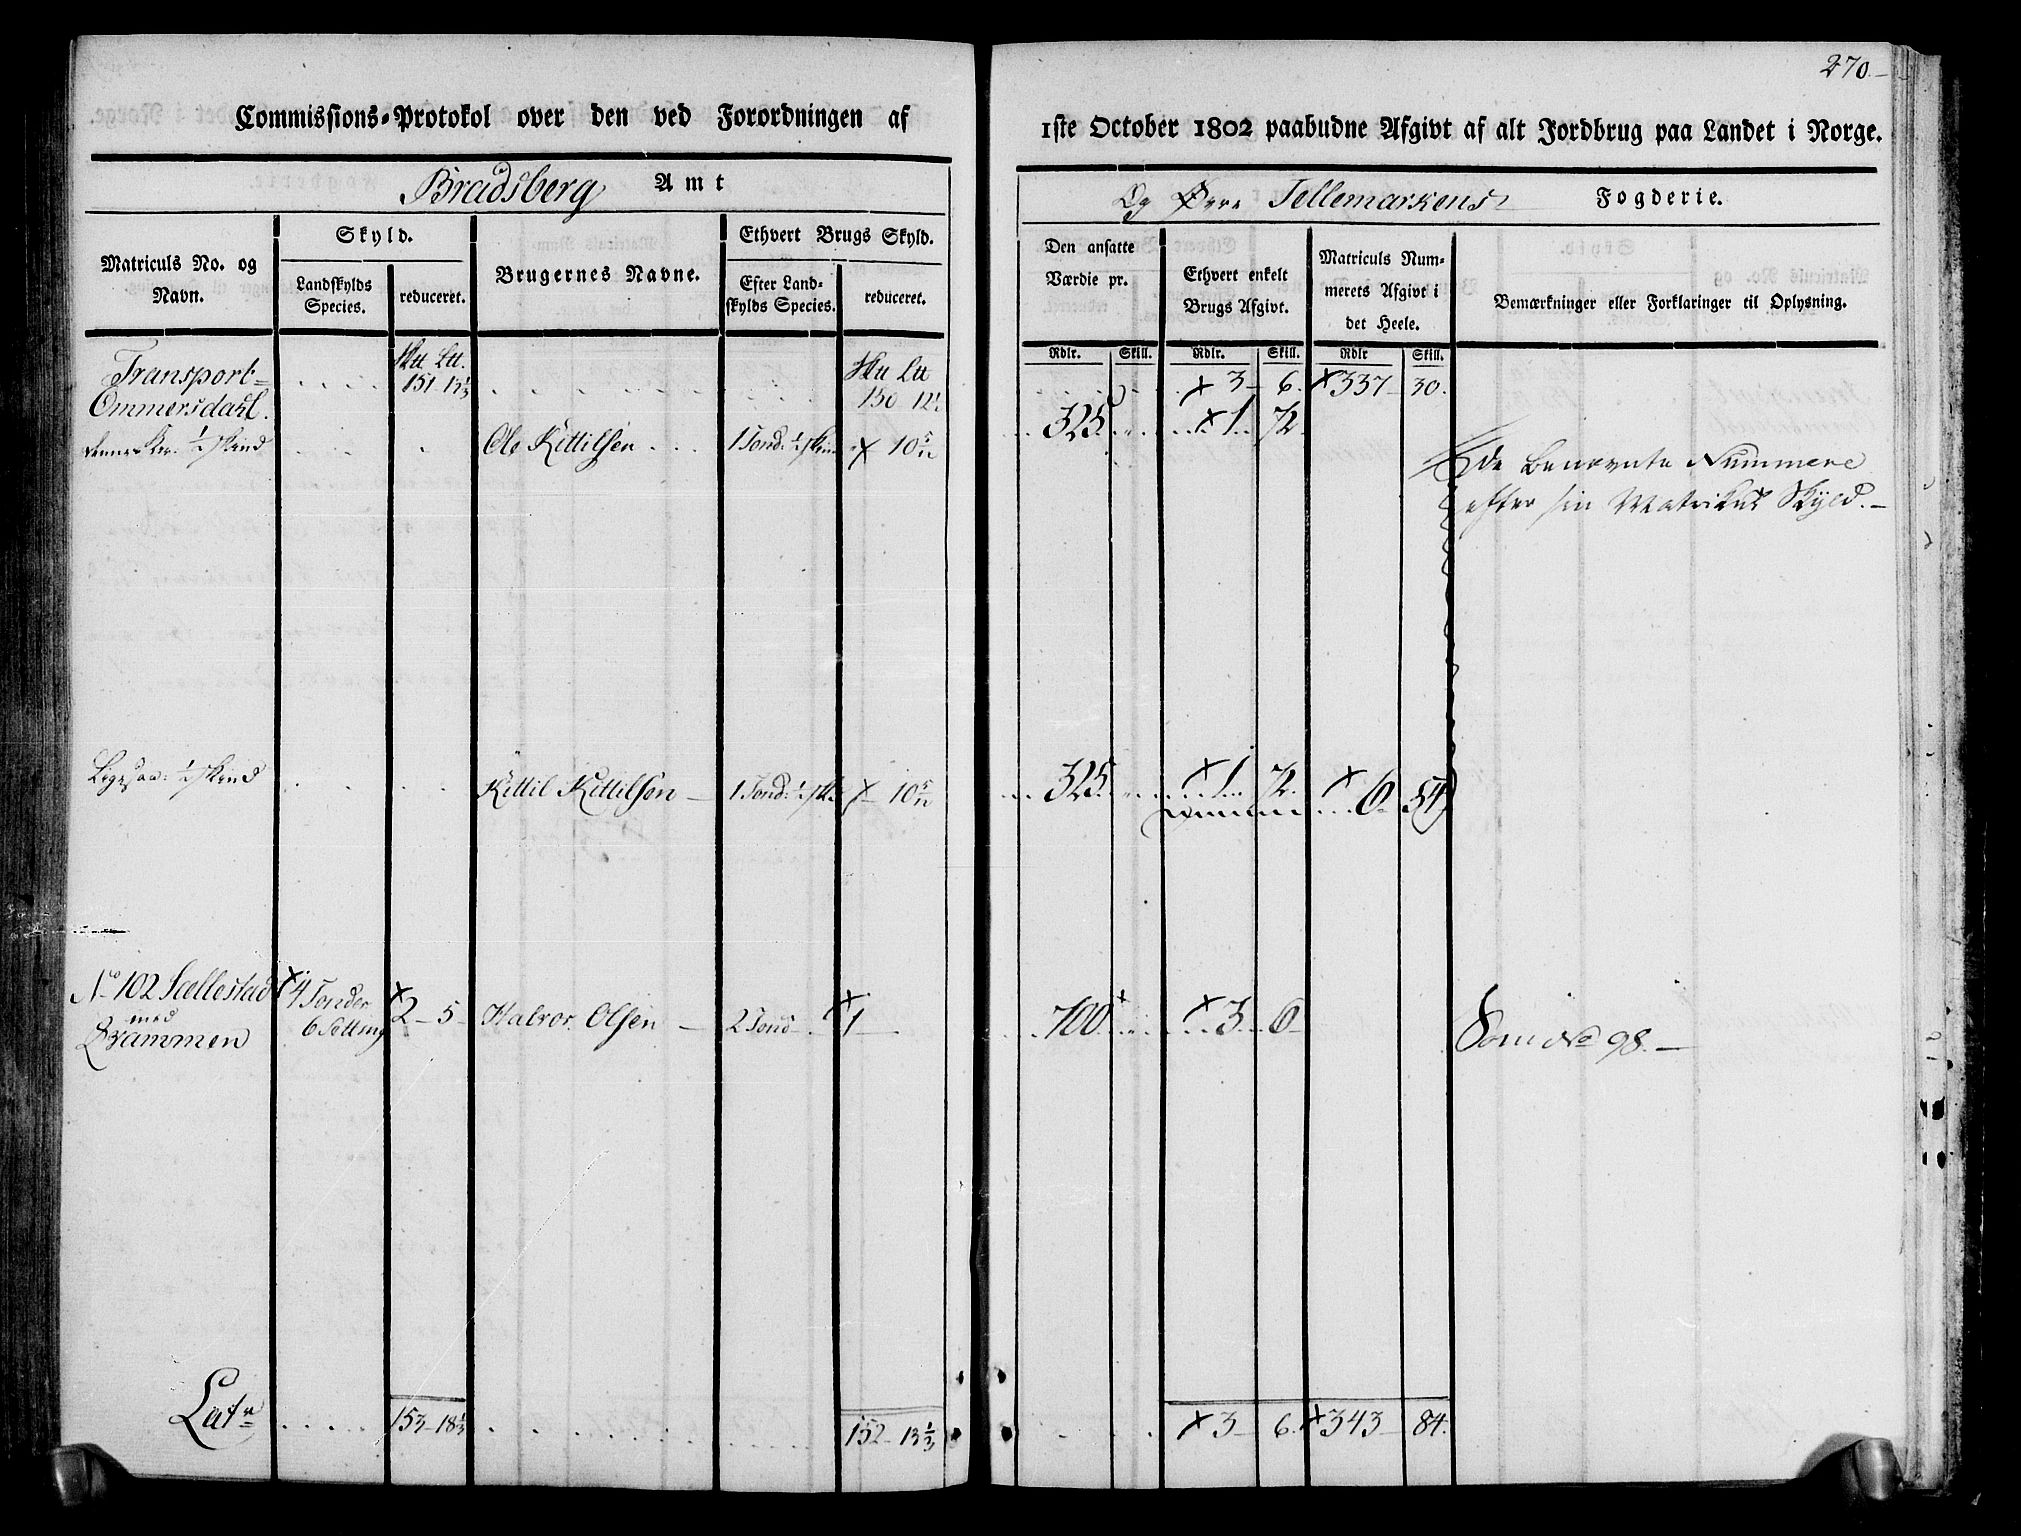 270.
Commissions-Protokol over den ved Forordningen af
1ste October 1802 paabudne Afgivt af alt Jordbrug paa Landet i Norge.
Bradsberg Amt
Og Øvre Tellemarkens Fogderie.
Matriculs No. og Navn.
Skyld.
Landskylds Species.
reduceret.
Brugernes Navne.
Ethvert Brugs Skyld.
Efter Landskylds Species.
reduceret.
Den ansatte Værdie pr.
Ethvert enkelt Brugs Afgivt.
Matriculs Nummerets Afgivt i det Heele.
Bemærkninger eller Forklaringer til Oplysning.
Rdlr. Skill. Rdlr. Skill. Rdlr Skill.
Transport 151 13⅓ 3 6. 337 30.
Ommersdahl. 325 1 72
½ Skind Ole Kittilsen 1 Tønd: ½ 10 5/12
De benevnte Nummere
efter sin Matrikul Skyld.
½ Skind Kittil Kittilsen 1 Tønd: ½ 10 5/12 325 1 72. 6 54
No 102 Sællestad 4 Tønder 2 5 Halvor Olsen 2 Tønd 1 700 3 6
med 6 Sætting
Qvammen
Som No 98.
Lat 153 18⅓ 152 13⅓ 3 6 343 84.